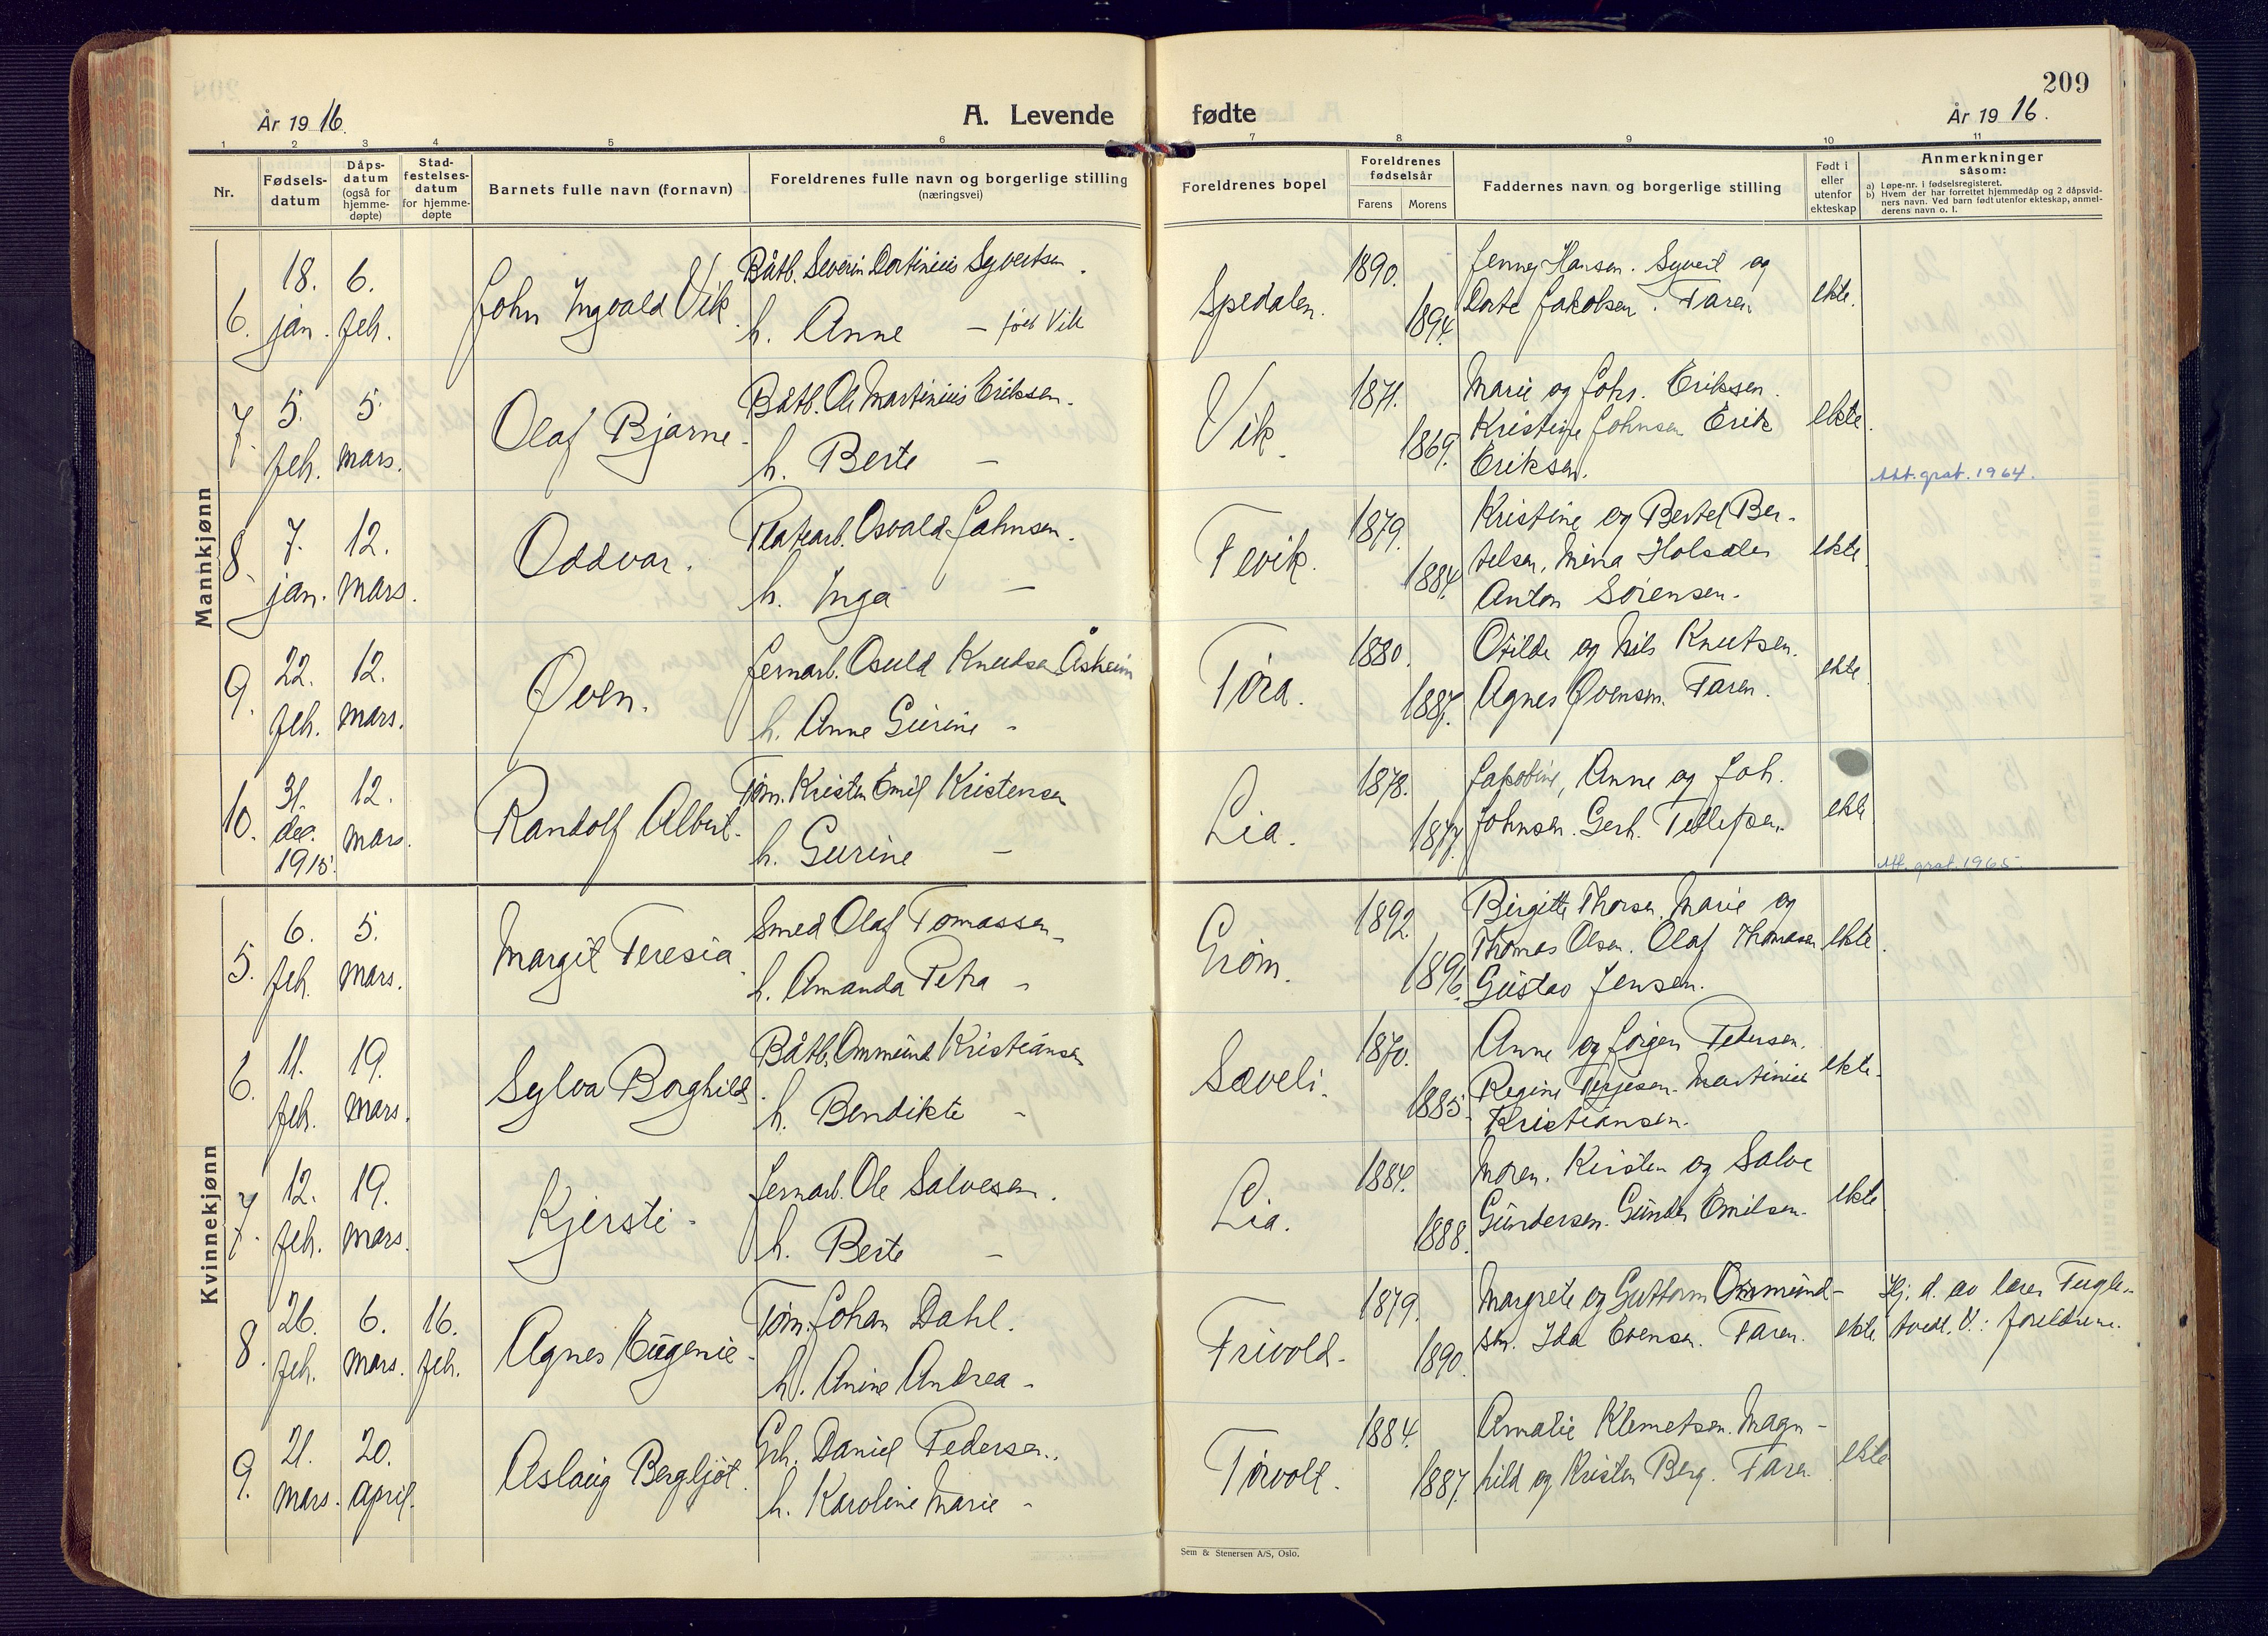 209
År 1916.
A. Levende fødte
År 1916.
1 2 3 4 5 6 7 8 9 10 11
Nr.
Fødsels-
datum
Dåps-
datum
(også for
hjemme-
døpte)
Stad-
festelses-
datum
for hjemme-
døpte
Barnets fulle navn (fornavn)
Foreldrenes fulle navn og borgerlige stilling
(næringsvei)
Foreldrenes bopel
Foreldrenes
fødselsår
Farens Morens
Faddernes navn og borgerlige stilling
Født i
eller
utenfor
ekteskap
Anmerkninger
såsom:
a) Løpe-nr. i fødselsregisteret.
b) Hvem der har forrettet hjemmedåp og 2 dåpsvid-
ners navn. Ved barn født utenfor ekteskap, anmel-
derens navn o. l.
Mannkjønn
6. 18. jan. 6. feb.
John Ingvald Vik.
Båtb. Severin Dortinius Syvertsen.
h. Anne — født Vik
Spedalen.
1890.
1894.
Jenny Hansen. Syvert og
Dorte Jakobsen. Faren
ekte.
7. 5. feb. 5. mars.
Olaf Bjarne.
Båtb. Ole Martinius Eriksen.
h. Berte —
Vik.
1871.
1869.
Marie og Johs. Eriksen.
Kristine Johnsen Erik
Eriksen.
ekte.
Att. grat. 1964.
8. 7. jan. 12. mars.
Oddvar.
Platearb. Osvald Jahnsen.
h. Inga —
Fevik.
1879.
1884.
Kristine og Bertel Ber-
telsen, Mina Holsdlen
Anton Sørensen.
ekte.
9. 22. feb. 12. mars.
Øven.
Jernarb. Osuld Knudsen Åsheim
h. Anne Gurine -
Tøra.
1880.
1887.
Otilde og Nils Knutsen.
Agnes Øvensen. Faren.
ekte.
10. 31. des. 1915. 12. mars.
Randolf Albert.
Tøm. Kristen Emil Kristensen
h. Gurine —
Lia.
1878.
1877.
Jakobine, Anne og Joh.
Johnsen. Gerh. Tellefsen.
ekte
Att. grat. 1965
Kvinnekjønn
5. 6. feb. 5. mars.
Margit Teresia.
Smed Olaf Tomassen.
h. Amanda Petra -
Grøm.
1892.
1896.
Birgitte Thorsen. Marie og
Thomas Olsen. Olaf Thomassen
Gustav Jensen.
ekte.
6. 11. feb. 19. mars.
Sylva Borghild.
Båtb. Ommund Kristiansen
h. Bendikte -
Sæveli.
1870.
1885.
Anne og Jørgen Pedersen.
Regine Terjesen. Martinius
Kristiansen.
ekte.
7. 12. feb. 19. mars.
Kjersti.
Jernarb. Ole Salvesen.
h. Berte —
Lia.
1884.
1888.
Moren. Kirsten og Salve
Gundersen. Gunder Emilsen.
ekte
8. 26. feb. 6. mars. 16. feb.
Agnes Eugenie.
Tøm. Johan Dahl.
h. Anine Andrea -
Frivold.
1879.
1890.
Margrete og Guttorm Ommund-
sen. Ida Evensen. Faren.
ekte.
Hj. d. av lærer Fugle-
tvedt. V.: foreldrene.
9. 21. mars. 20. april.
Aslaug Bergljot.
Grh. Daniel Pedersen.
h. Karoline Marie -
Tørvolt.
1884.
1887.
Amalie Klemetsen. Magn-
hild og Kristen Berg. Faren
ekte
Sem & Stenersen A/S, Oslo.